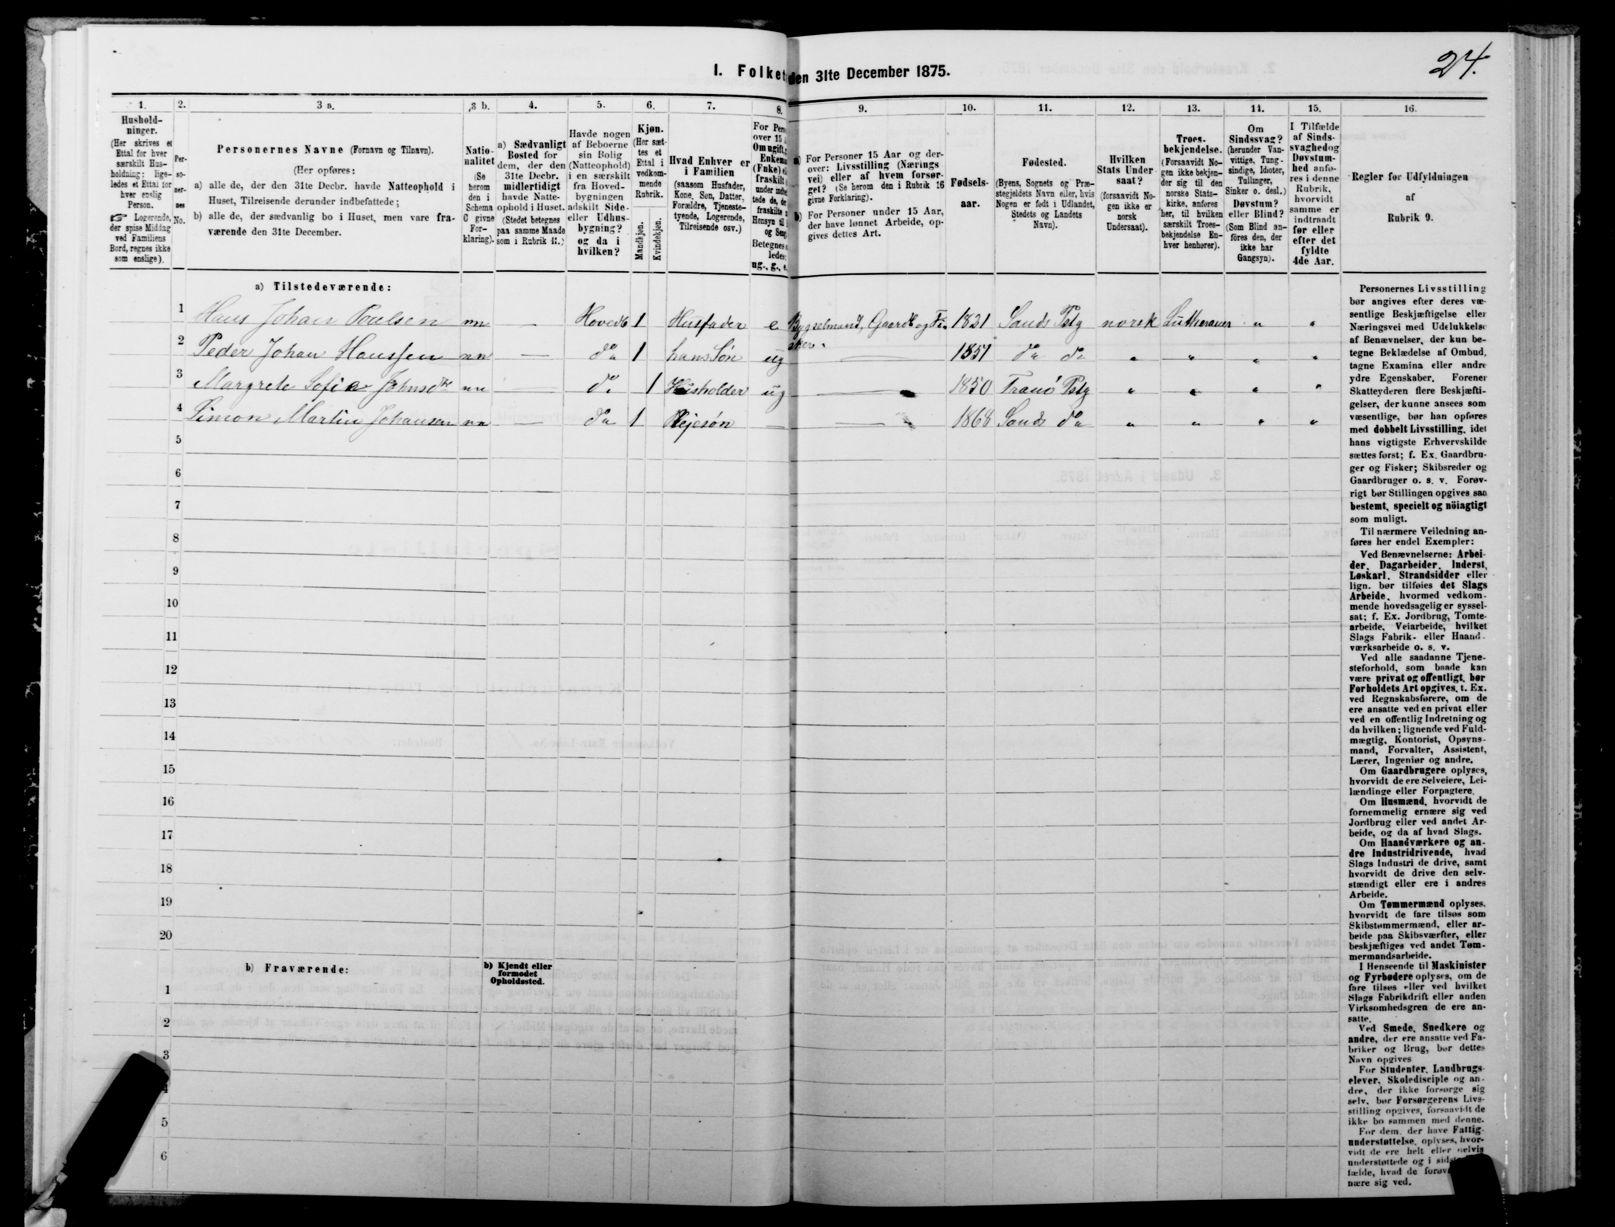 24.
I. Folket den 31te December 1875.
1. 2. 3 a. 3 b. 4. 5. 6. 7. 8. 9. 10. 11. 12. 13. 14. 15. 16.
Hushold-
ninger.
(Her skrives et
Ettal for hver
særskilt Hus-
holdning; lige-
ledes et Ettal for
hver enslig
Person.
Logerende,
der spise Middag
ved Familiens
Bord, regnes ikke
som enslige).
Per-
so-
ner-
nes
No.
Personernes Navne (Fornavn og Tilnavn).
(Her opføres:
a) alle de, der den 31te Decbr. havde Natteophold i
Huset, Tilreisende derunder indbefattede;
b) alle de, der sædvanlig bo i Huset, men vare fra-
værende den 31te December.
Natio-
nalitet
(Se
herom
den i
Schema
C givne
For-
klaring).
a) Sædvanligt
Bosted for
dem, der den
31te Decbr.
midlertidigt
havde Natte-
ophold i Huset.
(Stedet betegnes
paa samme Maade
som i Rubrik 11.)
Havde nogen
af Beboerne
sin Bolig
(Natteophold)
i en særskilt
fra Hoved-
bygningen
adskilt Side-
eller Udhus-
bygning?
og da i
hvilken?
Kjøn.
(Her sæt-
tes et
Ettal i
vedkom-
mende
Rubrik.
Mandkjøn.
Kvindekjøn.
Hvad Enhver er
i Familien
(saasom Husfader,
Kone, Søn, Datter,
Forældre, Tjeneste-
tyende, Logerende,
Tilreisende osv.)
For Pers
over 15
Om ugift,
Enkem
(Enke) e
fraskilt
Betegnes
ledes
ug., g., e.
a)
For Personer 15 Aar og der-
over: Livsstilling (Nærings
vei) eller af hvem forsør-
get? (Se herom den i Rubrik 16
givne Forklaring).
b)
For Personer under 15 Aar,
der have lønnet Arbeide, op-
gives dettes Art.
Fødsels-
aar.
Fødested.
(Byens, Sognets og Præ-
stegjeldets Navn eller, hvis
Nogen er født i Udlandet,
Stedets og Landets
Navn).
Hvilken
Stats Under-
saat?
(forsaavidt No-
gen ikke er
norsk
Undersaat).
Troes-
bekjendelse.
(Forsaavidt No-
gen ikke bekjen-
der sig til den
norske Stats-
kirke, anføres
her, til hvilken
særskilt Troes-
bekjendelse En-
hver henhører).
Om
Sindssvag?
(herunder Van-
vittige, Tung-
sindige, Idioter,
Tullinger,
Sinker o. desl.)
Døvstum?
eller Blind?
(Som Blind an-
føres den, der
ikke har
Gangsyn).
I Tilfælde
af Sinds-
svaghed og
Døvstum-
hed anfø-
res i denne
Rubrik,
hvorvidt
samme er
indtraadt
før eller
efter det
fyldte
4de Aar.
Regler for Udfyldningen
af
Rubrik 9.
a) Tilstedeværende:
1 Hans Johan Poulsen nn — Hovedb 1 Husfader e Bygselmand, Gaardb og Fisker. 1821 Sands Pstg norsk Lutheraner " "
2 Peder Johan Hanssen nn — do 1 hans Søn ug — 1857 do do " " " "
3 Margrete Sofie Johnsdtr nn — do 1 Husholder ug — 1850 Tranø Pstg " " " "
4 Simon Martin Johansen nn — do 1 Plejesøn — — 1868 Sands do " " " "
5
6
7
8
9
10
11
12
13
14
15
16
17
18
19
20
b) Fraværende:
b) Kjendt eller
formodet
Opholdssted.
1
2
3
4
5
6
Personernes Livsstilling
bør angives efter deres væ-
sentlige Beskjæftigelse eller
Næringsvei med Udelukkelse
af Benævnelser, der kun be-
tegne Beklædelse af Ombud,
tagne Examina eller andre
ydre Egenskaber. Forener
Skatteyderen flere Beskjæfti-
gelser, der kunne ansees som
væsentlige, bør han opføres
med dobbelt Livsstilling, idet
hans vigtigste Erhvervskilde
sættes først; f. Ex. Gaardbru-
ger og Fisker; Skibsreder og
Gaardbruger o. s. v. Forøv-
rigt bør Stillingen opgives saa
bestemt, specielt og nöiagtigt
som muligt.
Til nærmere Veiledning an-
føres her endel Exempler:
Ved Benævnelserne: Arbei-
der, Dagarbeider, Inderst,
Løskarl, Strandsidder eller
lign. bør tilføies det Slags
Arbeide, hvormed vedkom-
mende hovedsagelig er syssel-
sat; f. Ex. Jordbrug, Tomte-
arbeide, Veiarbeide, hvilket
Slags Fabrik- eller Haand-
værksarbeide o. s. v.
Ved alle saadanne Tjene-
steforhold, som baade kan
være privat og offentligt, bør
Forholdets Art opgives, t. Ex.
ved Regnskabsførere, om de
ere ansatte ved en privat eller
ved en offentlig Indretning og
da hvilken; lignende ved Fuld-
mægtig, Kontorist, Opsyns-
mand, Forvalter, Assistent,
Lærer, Ingeniør og andre.
Om Gaardbrugere oplyses,
hvorvidt de ere Selveiere, Lei-
lændinge eller Forpagtere.
Om Husmænd, hvorvidt de
fornemmelig ernære sig ved
Jordbrug eller ved andet Ar-
beide, og da af hvad Slags.
Om Haandværkere og an-
dre Industridrivende, hvad
Slags Industri de drive, samt
hvorvidt de drive den selv-
stændigt eller ere i andres
Arbeide.
Om Tømmermænd oplyses,
hvorvidt de fare tilsøs som
Skibstømmermænd, eller ar-
beide paa Skibsværfter, eller
beskjæftiges ved andet Tøm-
mermandsarbeide.
I Henseende til Maskinister
og Fyrbødere oplyses, om de
fare tilsøs eller ved hvilket
Slags Fabrikdrift eller anden
Virksomhedsgren de ere an-
satte.
Ved Smede, Snedkere og
andre, der ere ansatte ved Fa-
briker og Brug, bør dettes
Navn opgives
For Studenter, Landbrugs-
elever, Skoledisciple og an-
dre, der ikke forsørge sig
selv, bør Forsørgerens Livs-
stilling opgives, forsaavidt de
ikke bo sammen med denne.
For dem, der have Fattig-
understøttelse, oplyses, hvor-
vidt de ere helt eller delvis
understøttede og i sidst
fælde, hvad de forøv
nære sig ved.